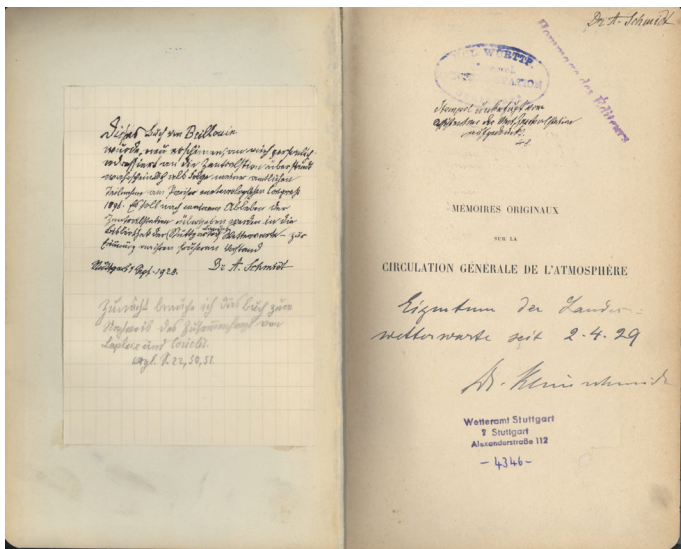 Dieses Buch von Brillouin
wurde, neu erschienen, an mich persönlich
adressiert an die Zentralstation übersandt
wahrscheinlich als Folge meiner amtlichen
Teilnahme am Pariser meteorologischen Congress
189. Es soll nach meinem Ableben der
Zentralstation übergeben werden in die
Bibliothek der Stuttgarter Wetterwarte – zur
Erinnerung an ihren früheren Vorstand
Stuttgart 1 Sept. 1928. Dr A. Schmidt
Zunächst brauche ich das Buch zum
Nachweis des Zusammenhangs von
Laplace und Coriolis.
vergl. S. 22, 50, 51.
Dr A. Schmidt
Hommage des Éditeurs
KGL. WÜRTTP.
METEOROL.
CENTRALSTATION
Stempel unbefugt vom
Assistenten der Met. Zentralstation
aufgedrückt.
MÉMOIRES ORIGINAUX
SUR LA
CIRCULATION GÉNÉRALE DE L'ATMOSPHÈRE
Eigentum der Landes-
wetterwarte seit 2.4.29
Dr. Kleinschmidt
Wetteramt Stuttgart
Stuttgart
Alexanderstraße 112
– 4346 –